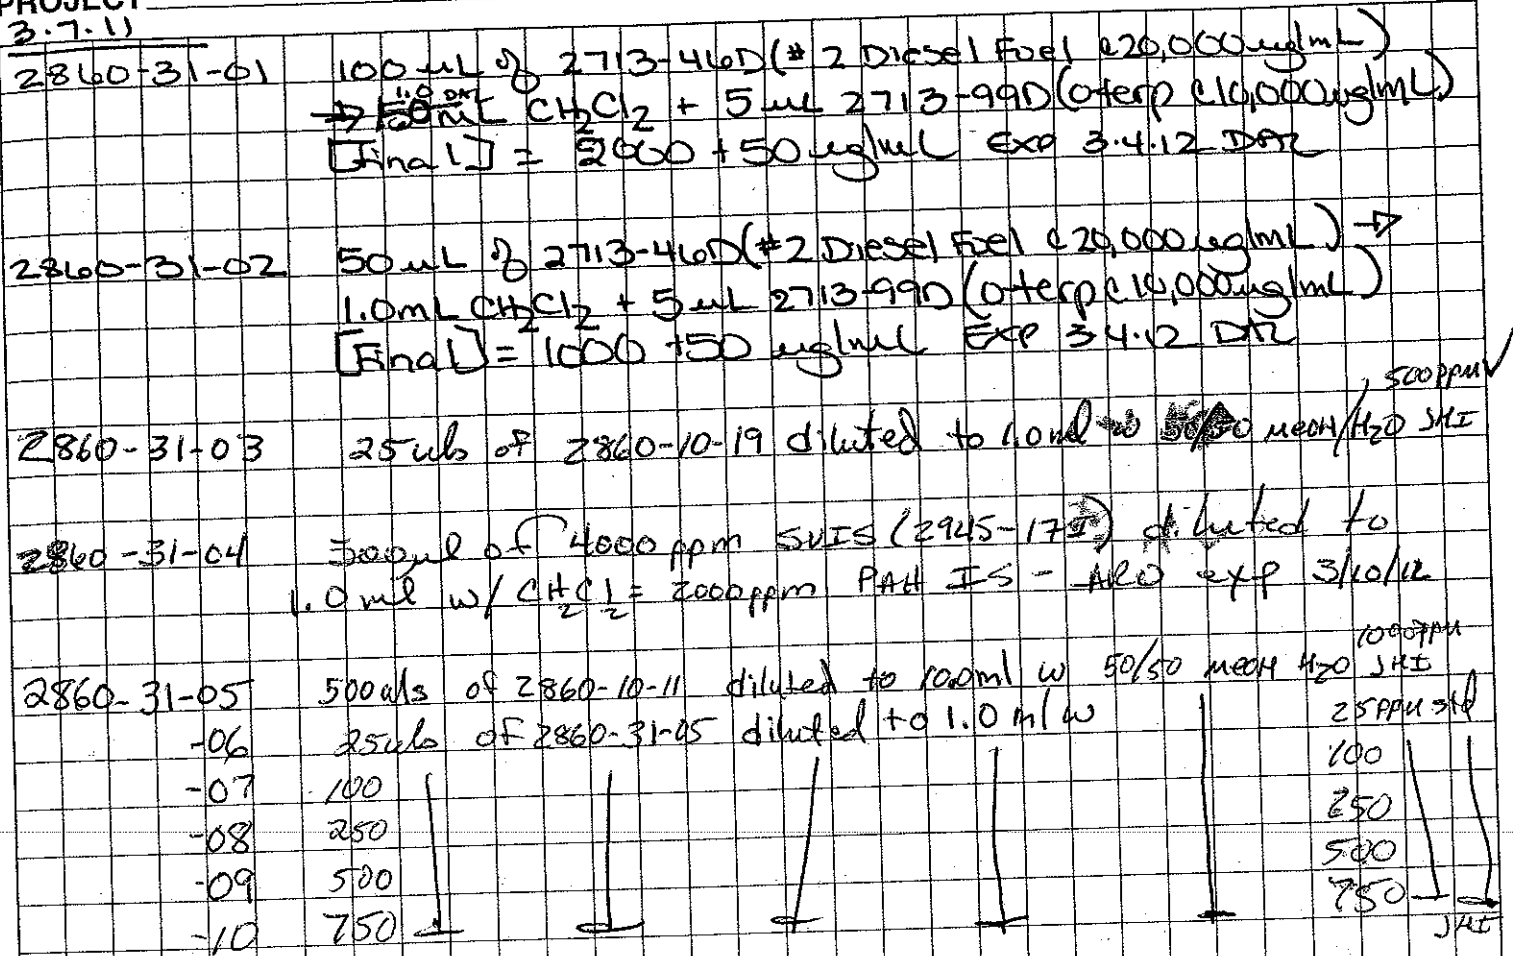 PROJECT
3.7.11
2860-31-01 100 uL of 2713-46D (#2 Diesel Fuel @20,000ug/mL)
→ 1.0 DAR mL CH2Cl2 + 5 uL 2713-99D (o-terp @10,000ug/mL)
[Final] = 2000 + 50 ug/mL Exp 3.4.12 DAR
2860-31-02 50 uL of 2713-46D (#2 Diesel Fuel @20,000ug/mL) →
1.0mL CH2Cl2 + 5 uL 2713-99D (o-terp @10,000ug/mL)
[Final] = 1000 + 50 ug/mL Exp 3.4.12 DAR
, 500ppm ✓
2860-31-03 25uls of 2860-10-19 diluted to 1.0ml w 50/50 MeOH/H2O JHI
2860-31-04 500µl of 4000 ppm SVIS (2945-17I) diluted to
1.0 ml w/ CH2Cl2 = 2000ppm PAH IS - ARO exp 3/10/12
1000ppm
2860-31-05 500uls of 2860-10-11 diluted to 10.0ml w 50/50 MeOH H2O JHI
-06 25uls of 2860-31-05 diluted to 1.0 ml w 25ppm std
-07 100 100
-08 250 250
-09 500 500
-10 750 750
JHI